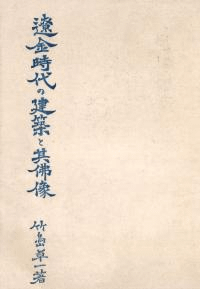 遼金時代の建築と其佛像
竹島卓一著